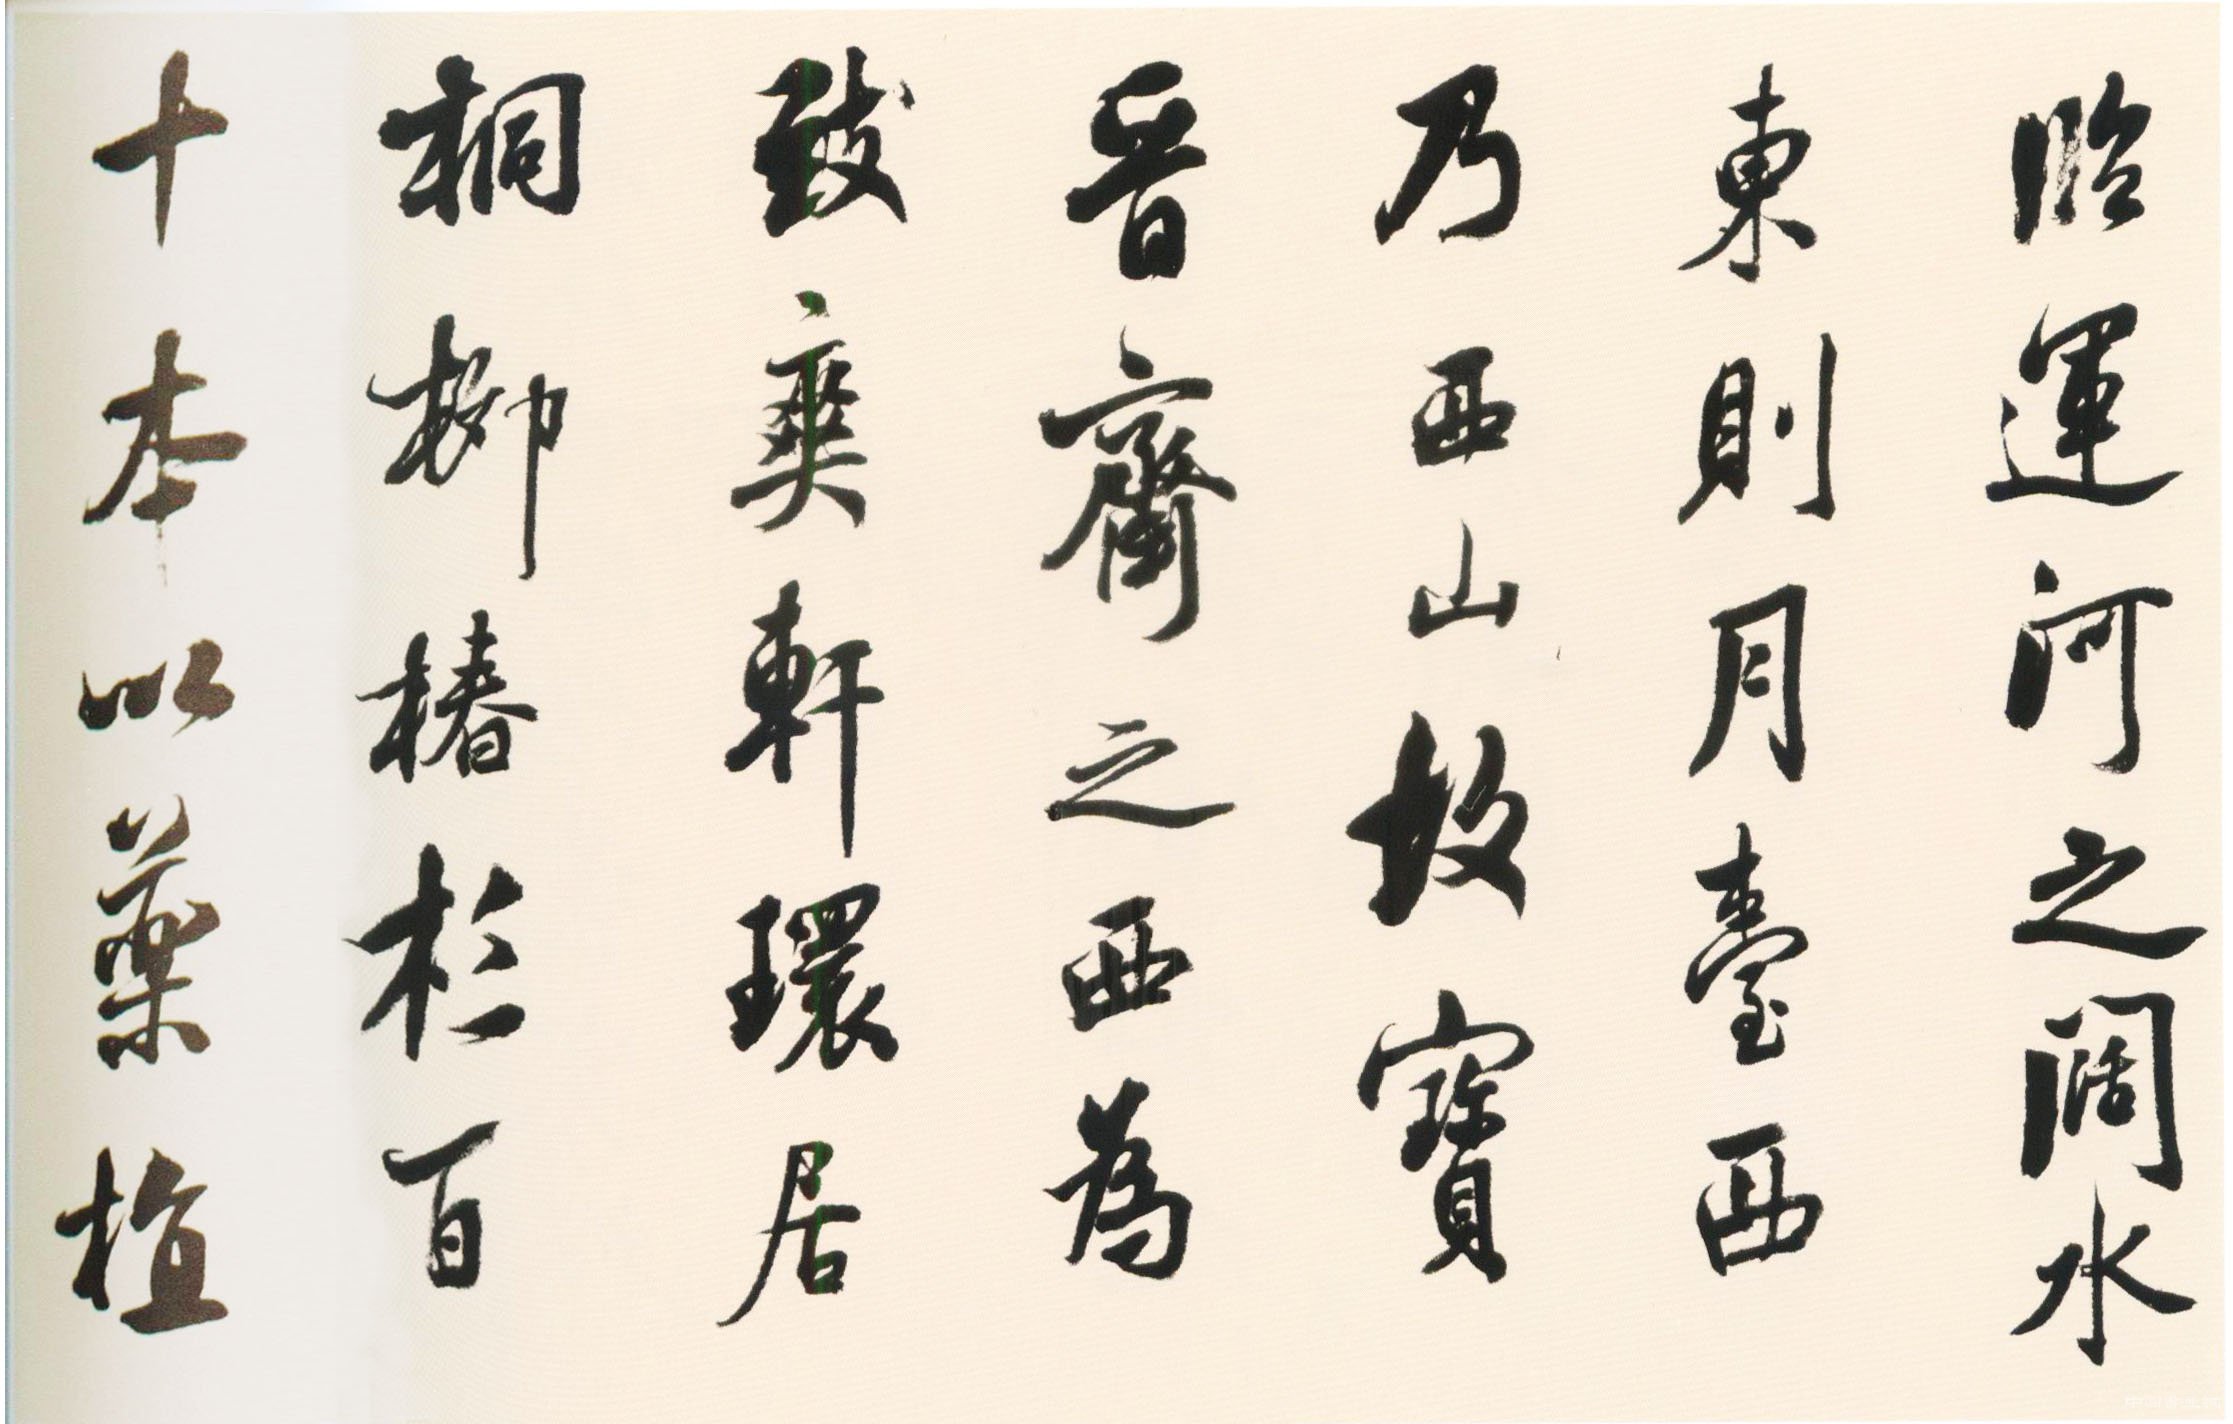 臨運河之闊水
東則月臺西
乃西山故寶
晉齋之西為
致爽軒環居
桐柳椿杉百
十本以藥植